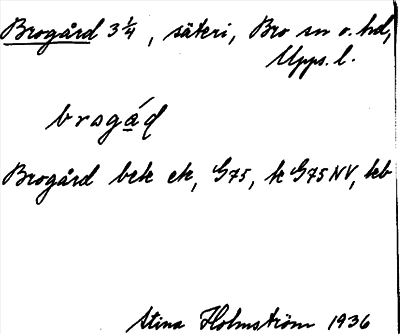 Brogård 3 ¼, säteri, Bro sn o. hd,
Upps. l.
brogád
Brogård bek ek, G75, k G75NV, kb
Stina Holmström 1936